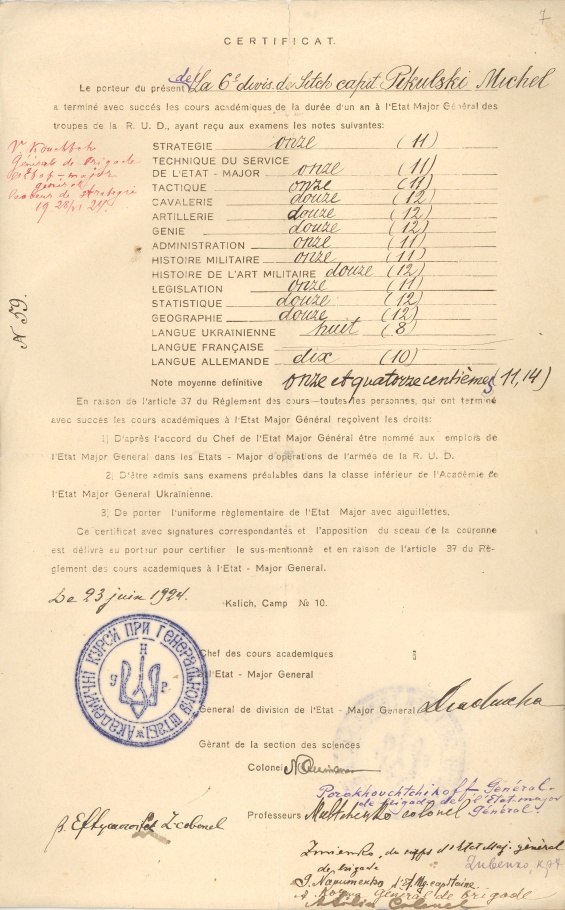 7
CERTIFICAT.
Le porteur du présent de la 6e divis. de Sitch capit Pekulski Michel
a terminé avec succés les cours académiques de la durée d'un an à l'Etat Major Général des
troupes de la R. U. D., ayant reçu aux examens les notes suivantes:
Général de brigade
général
STRATEGIE onze (11)
TECHNIQUE DU SERVICE
DE L'ETAT - MAJOR onze (11)
TACTIQUE onze (11)
CAVALERIE douze (12)
ARTILLERIE douze (12)
GENIE douze (12)
ADMINISTRATION onze (11)
HISTOIRE MILITAIRE onze (11)
HISTOIRE DE L'ART MILITAIRE douze (12)
LEGISLATION onze (11)
STATISTIQUE douze (12)
GEOGRAPHIE douze (12)
LANGUE UKRAINIENNE huit (8)
LANGUE FRANÇAISE
LANGUE ALLEMANDE dix (10)
N 59.
Note moyenne définitive onze et quatorze centièmes 11,14)
En raison de l'article 37 du Réglement des cours—toutes les personnes, qui ont terminé
avec succes les cours académiques à l'Etat Major Général reçoivent les droits:
1) D'après l'accord du Chef de l'Etat Major Général être nommé aux emplois de
l'Etat Major General dans les Etats - Major d'operations de l'armés de la R. U. D.
2) D'être admis sans examens préalables dans la classe inférieur de l'Académie de
l'Etat Major General Ukrainienne.
3) De porter l'uniforme règlementaire de l'Etat Major avec aiguillettes.
Ce certificat avec signatures correspondantes et l'apposition du sceau de la couronne
est délivré au portèur pour certifier le sus-mentionnè et en raison de l'article 37 du Rè-
glement des cours académiques à l'Etat - Major General.
Le 23 juin 1924.
Kalich, Camp № 10.
АКАДЕМИЧНІ КУРСИ ПРИ ГЕНЕРАЛЬНОМУ ШТАБІ
У Н Р
Chef des cours académiques
l'Etat - Major General
General de division de l'Etat - Major General
Gérant de la section des sciences
Colonel
Porokhovchtchikoff Général
de brigade de l'Etat-major
Général.
Professeurs colonel
colonel
général
de brigade
Zubenko,
J. Naoumenko capitaine
Général de brigade
Colonel